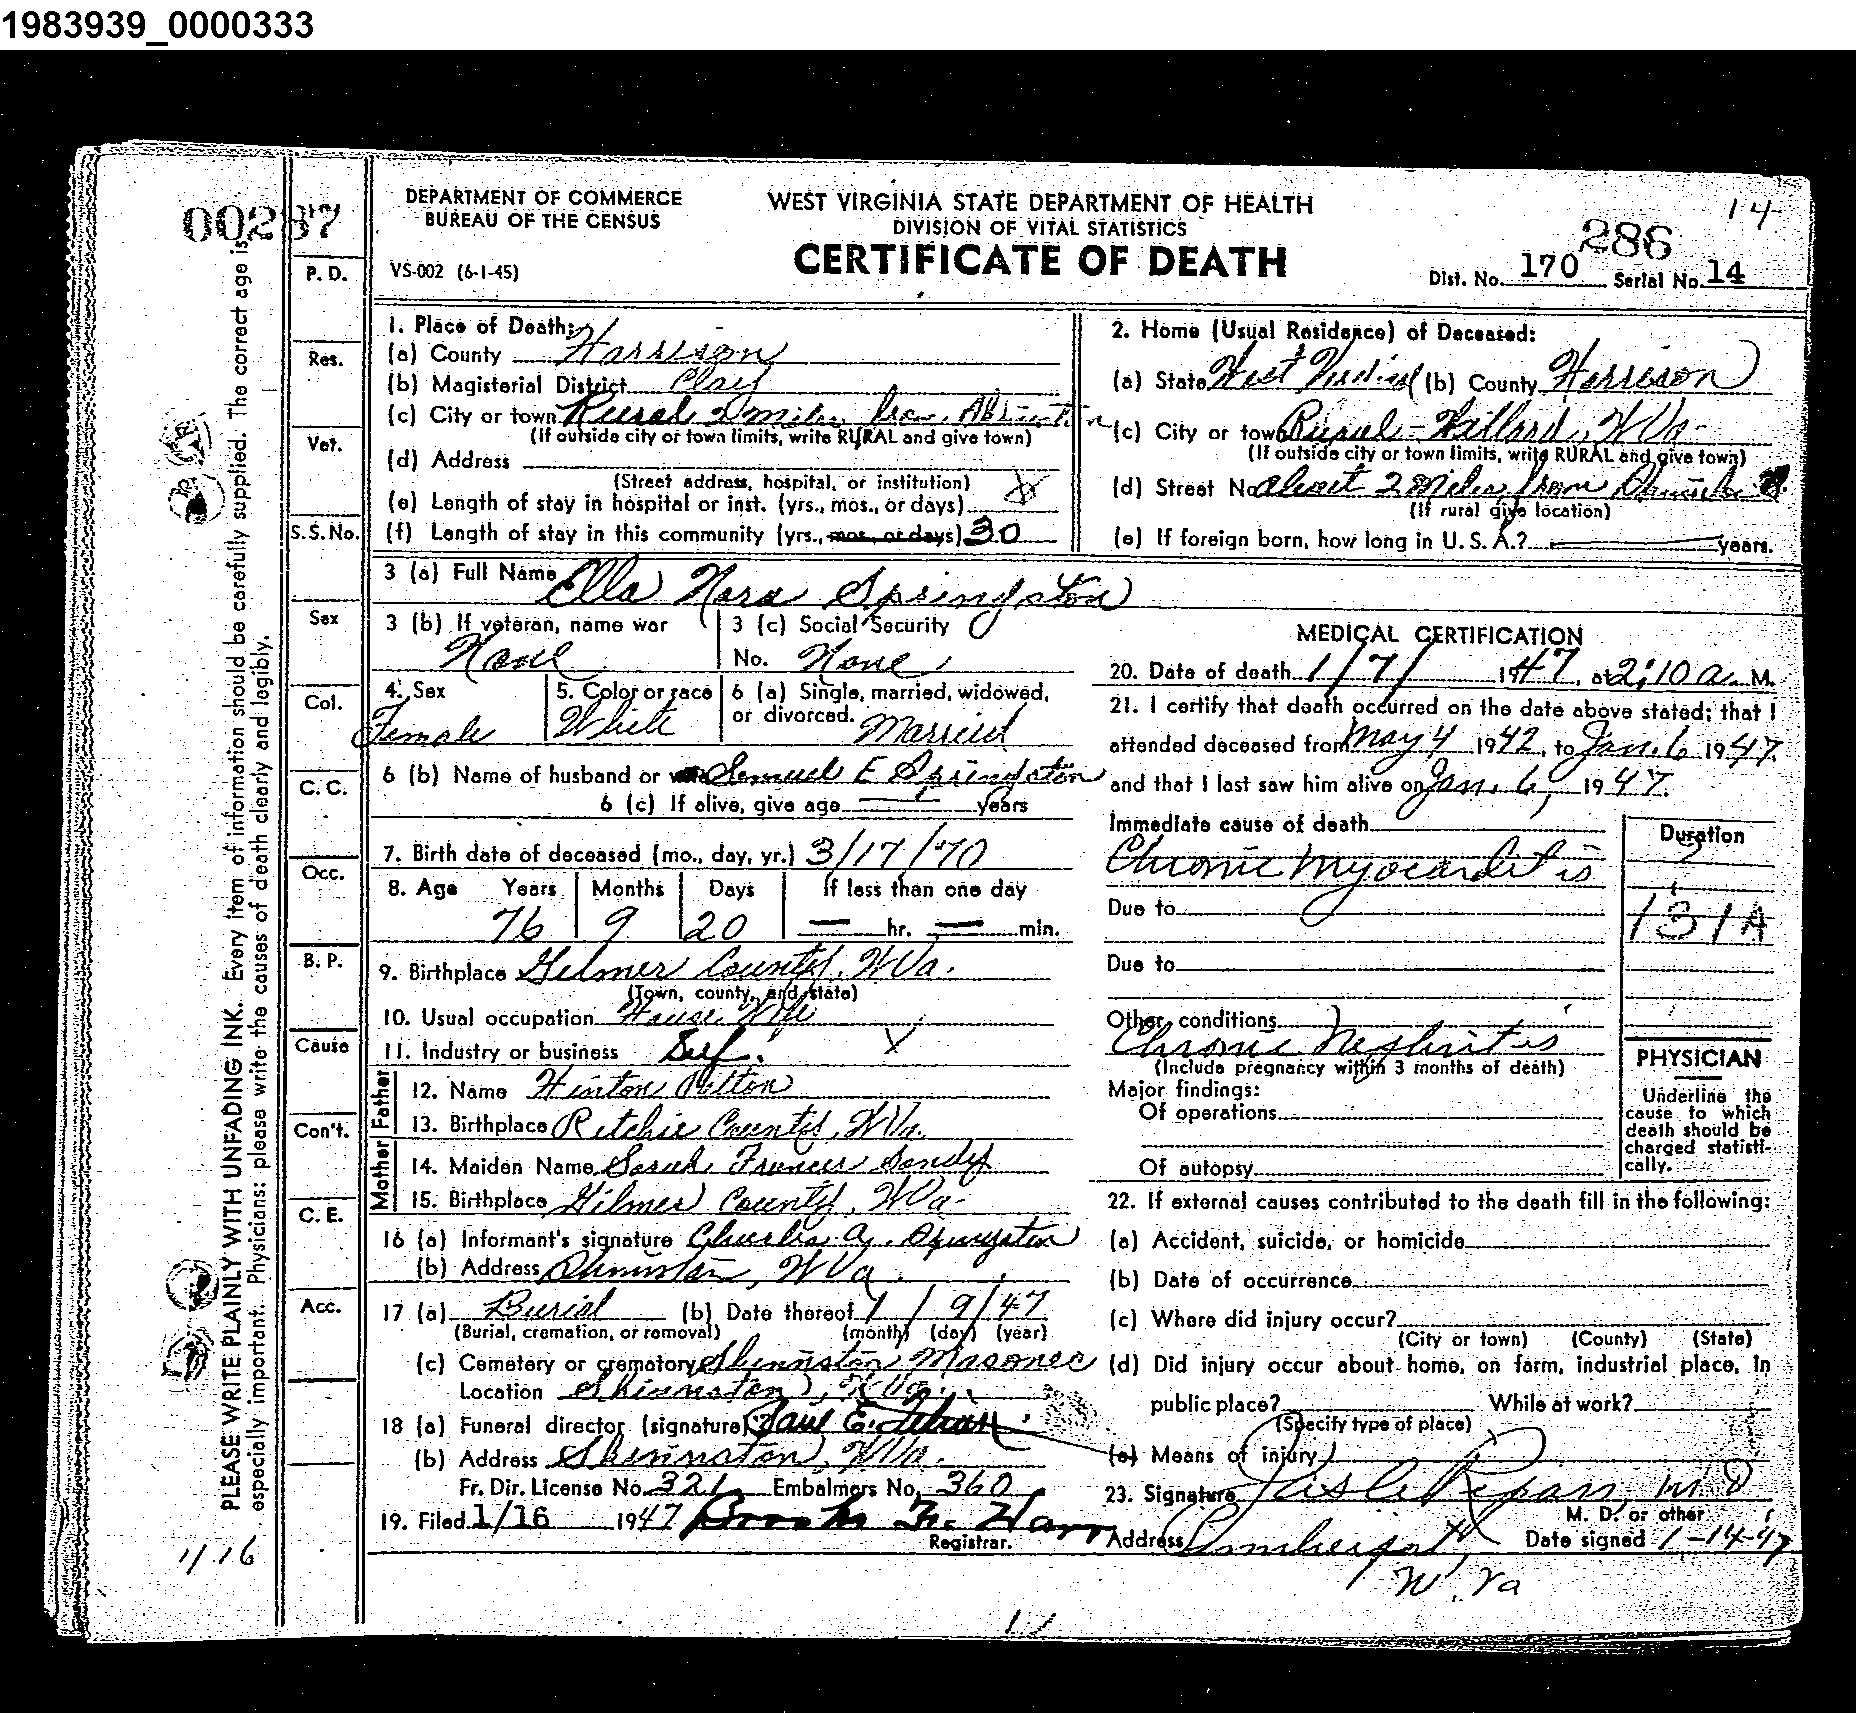 1983939_0000333
00287
DEPARTMENT OF COMMERCE
BUREAU OF THE CENSUS
WEST VIRGINIA STATE DEPARTMENT OF HEALTH
DIVISION OF VITAL STATISTICS
CERTIFICATE OF DEATH
14
286
VS-002 (6-1-45)
Dist. No. 170 Serial No. 14
P. D.
Res.
Vet.
S. S. No.
Sex
Col.
C. C.
Occ.
B. P.
Cause
Con't.
C. E.
Acc.
PLEASE WRITE PLAINLY WITH UNFADING INK. Every item of information should be carefully supplied. The correct age is
especially important. Physicians: please write the causes of death clearly and legibly.
1/16
1. Place of Death:
(a) County Harrison
(b) Magisterial District Clay
(c) City or town Rural 2 miles from
(If outside city or town limits, write RURAL and give town)
(d) Address
(Street address, hospital, or institution)
(e) Length of stay in hospital or inst. (yrs., mos., or days) X
(f) Length of stay in this community (yrs., mos., or days) 30
2. Home (Usual Residence) of Deceased:
(a) State West Virginia (b) County Harrison
(c) City or town Rural - W Va.
(If outside city or town limits, write RURAL and give town)
(d) Street No. about 2 miles from
(If rural give location)
(e) If foreign born, how long in U. S. A.? years.
3 (a) Full Name Ella Nora Springston
3 (b) If veteran, name war
None
3 (c) Social Security
No. None
4. Sex
Female
5. Color or race
White
6 (a) Single, married, widowed,
or divorced. Married
6 (b) Name of husband or wife Samuel E Springston
6 (c) If alive, give age years
7. Birth date of deceased (mo., day, yr.) 3/17/70
8. Age Years Months Days If less than one day
76 9 20 — hr. — min.
9. Birthplace Gilmer County, W Va.
(Town, county, and state)
10. Usual occupation House Wife
11. Industry or business Self. X
Father
12. Name Hinton
13. Birthplace Ritchie County, W Va.
Mother
14. Maiden Name Sarah Frances Bandy
15. Birthplace Gilmer County, W Va.
16 (a) Informant's signature Charles A. Springston
(b) Address Shinnston, W Va.
17 (a) Burial (b) Date thereof 1/9/47
(Burial, cremation, or removal) (month) (day) (year)
(c) Cemetery or crematory Shinnston Masonic
Location Shinnston, W Va.
18 (a) Funeral director (signature) Paul E.
(b) Address Shinnston, W Va.
Fr. Dir. License No. 321 Embalmers No. 360
19. Filed 1/16 1947
Registrar.
MEDICAL CERTIFICATION
20. Date of death 1/7/ 1947, at 2:10 a. M.
21. I certify that death occurred on the date above stated; that I
attended deceased from May 4 1942, to Jan. 6 1947.
and that I last saw him alive on Jan. 6, 1947.
Immediate cause of death
Chronic Myocarditis
Due to
Due to
Duration
?
131A
Other conditions
Chronic Nephritis
(Include pregnancy within 3 months of death)
Major findings:
Of operations
Of autopsy
PHYSICIAN
Underline the
cause to which
death should be
charged statisti-
cally.
22. If external causes contributed to the death fill in the following:
(a) Accident, suicide, or homicide
(b) Date of occurrence
(c) Where did injury occur?
(City or town) (County) (State)
(d) Did injury occur about home, on farm, industrial place, in
public place? While at work?
(Specify type of place)
(e) Means of injury
23. Signature M D
M. D. or other
Address Lumberport, Date signed 1-14-47
W. Va